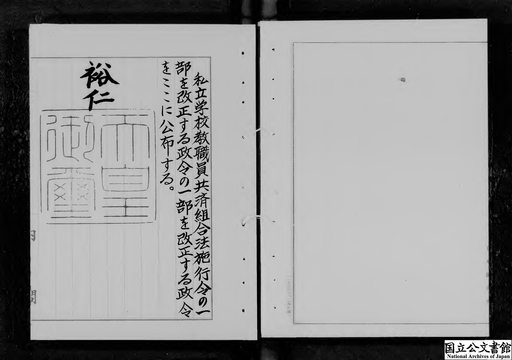 私立学校教職員共済組合法施行令の一
部を改正する政令の一部を改正する政令
をここに公布する。
裕仁
天皇
御璽
国立公文書館
National Archives of Japan